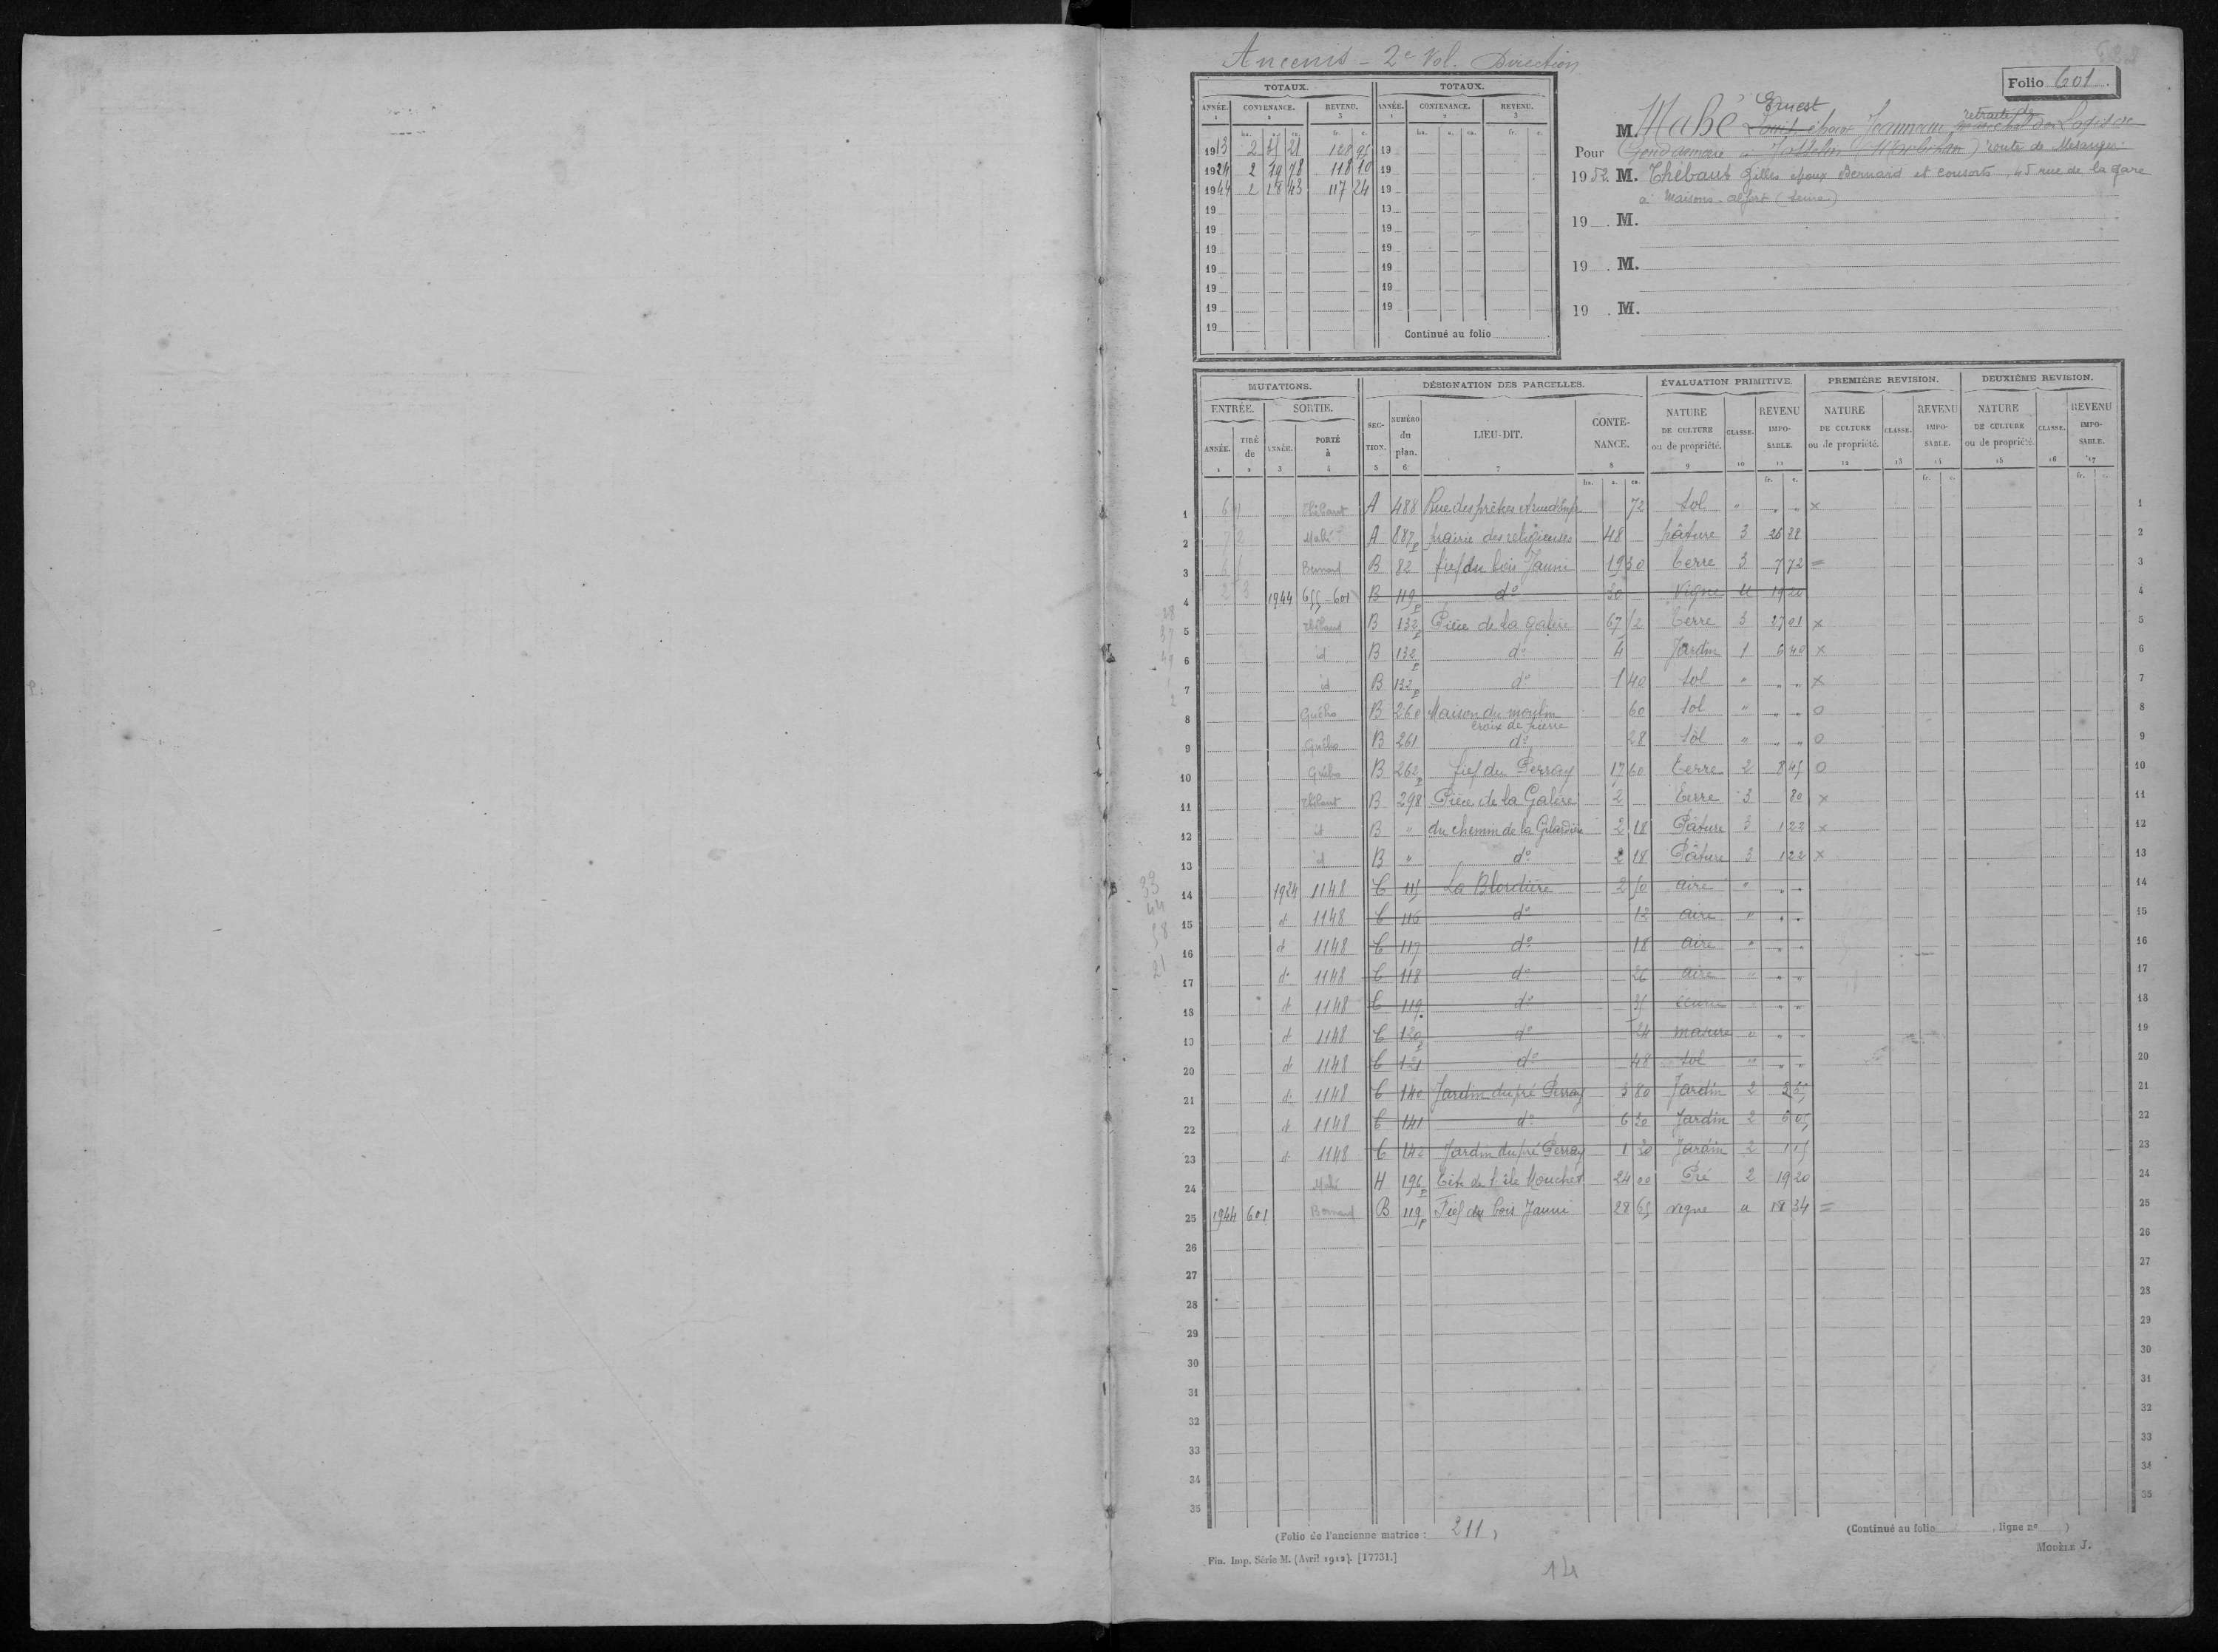 Ancenis - 2e Vol. Direction
Folio 601.
TOTAUX. TOTAUX.
ANNÉE. CONTENANCE. REVENU. ANNÉE. CONTENANCE. REVENU.
1 2 3 1 2 3
ha. a. ca. fr. c. ha. a. ca. fr. c.
1913 2 85 21 128 95 19
1924 2 79 78 118 10 19
1944 2 18 43 117 24 19
19 13
19 19
19 19
19 19
19 19
19 19
19 Continué au folio
Ernest
retraité de
M. Mahé Louis époux Jeanneau de Logis de
Pour Gendarmerie à Josselin (Morbihan) route de Mésanger
1952 M. Thébaut Gilles époux Bernard et consorts, 45 rue de la gare
à Maisons-Alfort (Seine)
19 . M.
19 . M.
19 . M.
MUTATIONS. DÉSIGNATION DES PARCELLES. ÉVALUATION PRIMITIVE. PREMIÈRE REVISION. DEUXIÈME REVISION.
ENTRÉE. SORTIE. SEC-TION. NUMÉRO du plan. LIEU-DIT. CONTE-NANCE. NATURE DE CULTURE ou de propriété. CLASSE. REVENU IMPO-SABLE. NATURE DE CULTURE ou de propriété. CLASSE. REVENU IMPO-SABLE. NATURE DE CULTURE ou de propriété. CLASSE. REVENU IMPO-SABLE.
ANNÉE. TIRÉ de ANNÉE. PORTÉ à
1 2 3 4 5 6 7 8 9 10 11 12 13 14 15 16 17
ha. a. ca. fr. c. fr. c. fr. c.
1 Thébaut A 488 Rue des prêtres 72 sol " " " x 1
2 Mahé A 887 p prairie des religieuses 48 pâture 3 26 88 2
3 Bernard B 82 fief du bois Jauni 19 30 terre 3 7 72 = 3
4 1944 655-601 B 119 p do 30 Vigne u 19 20 4
5 Thébaut B 132 p Pièce de la galère 67 52 terre 3 27 01 x 5
6 id B 132 p do 4 Jardin 1 6 40 x 6
7 id B 132 p do 1 40 sol " " " x 7
8 Guého B 260 Maison du moulin 60 sol " " " o 8
croix de pierre
9 Guého B 261 do 28 sol " " " o 9
10 Guého B 262 p fief du Perray 17 60 terre 2 8 45 o 10
11 Thébaut B 298 Pièce de la Galère 2 terre 3 80 x 11
12 id B " du chemin de la 2 18 Pâture 3 1 22 x 12
13 id B " do 2 18 Pâture 3 1 22 x 13
14 1924 1148 C 115 La Blordière 2 50 aire " " " 14
15 do 1148 C 116 do 12 aire " " " 15
16 do 1148 C 117 do 18 aire " " " 16
17 do 1148 C 118 do 26 aire " " " 17
18 do 1148 C 119 do 35 écurie " " 18
19 do 1148 C 120 p do 24 masure " " " 19
20 do 1148 C 121 do 48 sol " " " 20
21 do 1148 C 140 Jardin du pré Perray 3 80 Jardin 2 21
22 do 1148 C 141 do 6 30 Jardin 2 22
23 do 1148 C 142 Jardin du pré Perray 1 30 Jardin 2 1 15 23
24 Mahé H 196 p Tête de l'île Mouchet 24 00 Pré 2 19 20 24
25 1944 601 Bernard B 119 p Fief du bois Jauni 28 65 vigne u 18 34 = 25
26 26
27 27
28 28
29 29
30 30
31 31
32 32
33 33
34 34
35 35
(Folio de l'ancienne matrice : 211)
(Continué au folio , ligne no )
Fin. Imp. Série M. (Avril 1912). [17731.]
MODÈLE J.
14